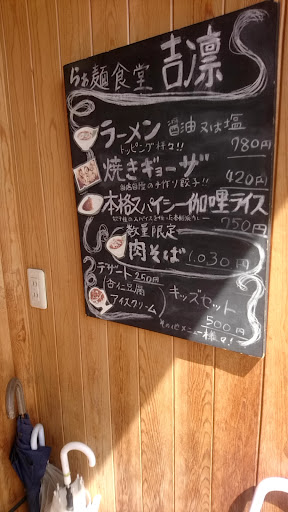 らぁ麺食堂 吉凛
ラーメン 醤油又は塩
トッピング 780円
焼きギョーザ
の手作り餃子!! 420円
本格スパイシー伽哩ライス
750円
数量限定
肉そば 1.030円
デザート 250円
杏仁豆腐
アイスクリーム
キッズセット
500円
その他メニュー様々!